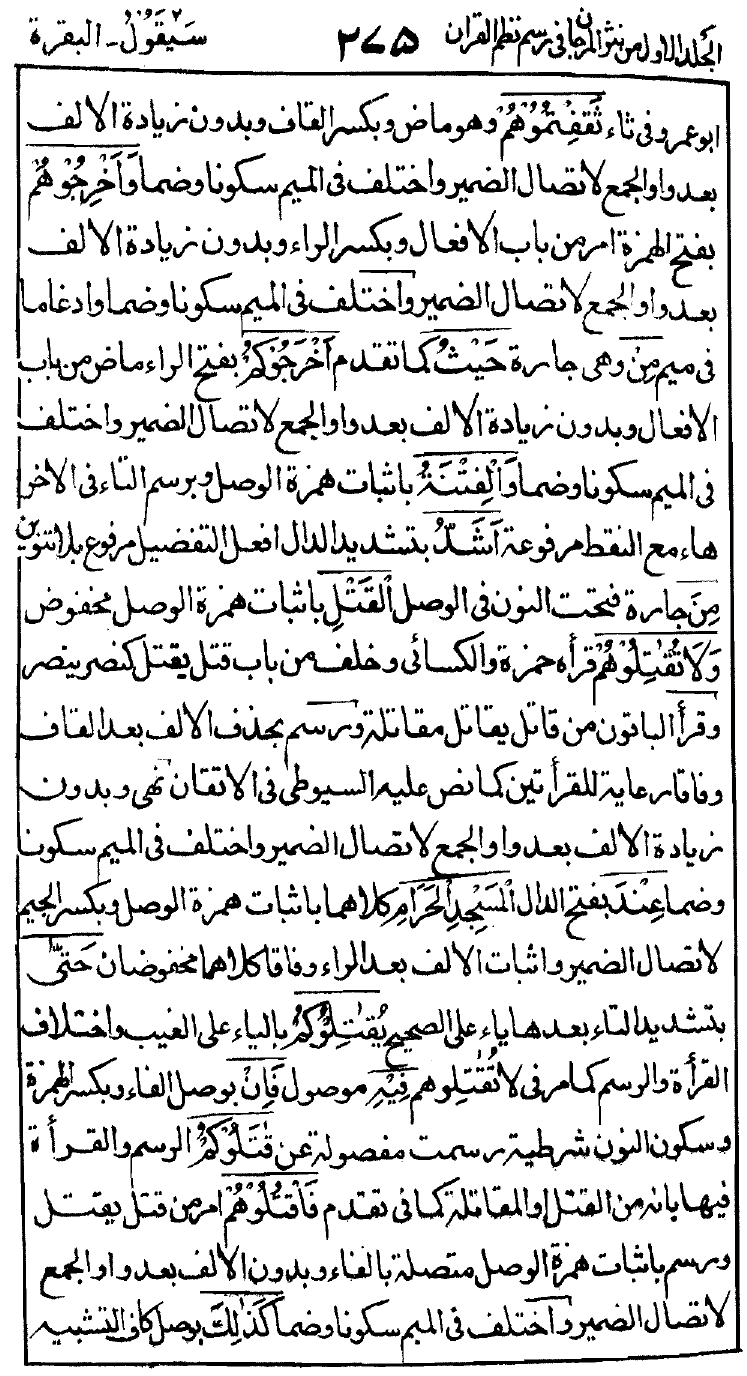 الجلد الاول من نثر المرجان فى رسم نظم القران ٢٧٥ سَيَقُوْلُ - البقرة
ابو عمرو فى ثاء ثَقِفْتُمُوْهُمْ وهو ماض وبكسر القاف وبدون زيادة الالف
بعد واو الجمع لاتصال الضمير واختلف فى الميم سكونا وضما وَاَخْرِجُوْهُمْ
بفتح الهمزة امر من باب الافعال وبكسر الراء وبدون زيادة الالف
بعد واو الجمع لاتصال الضمير واختلف فى الميم سكونا وضما وادغاما
فى ميم مِنْ وهى جارة حَيْثُ كما تقدم اَخْرَجُوْكُمْ بفتح الراء ماض من باب
الافعال وبدون زيادة الالف بعد واو الجمع لاتصال الضمير واختلف
فى الميم سكونا وضما وَالْفِتْنَةُ باثبات همزة الوصل وبرسم التاء فى الاخر
هاء مع النقط مرفوعة اَشَدُّ بتشديد الدال افعل التفضيل مرفوع بلا تنوين
مِنَ جارة فتحت النون فى الوصل الْقَتْلِ باثبات همزة الوصل مخفوض
وَلَا تُقٰتِلُوْهُمْ قرأه حمزة والكسائى وخلف من باب قتل يقتل كنصر ينصر
وقرأ الباقون من قاتل يقاتل مقاتلة ورسم بحذف الالف بعد القاف
وفاقا رعاية للقرأتين كما نص عليه السيوطى فى الاتقان نهى وبدون
زيادة الالف بعد واو الجمع لاتصال الضمير واختلف فى الميم سكونا
وضما عِنْدَ بفتح الدال الْمَسْجِدِ الْحَرَامِ كلاهما باثبات همزة الوصل وبكسر الجيم
لاتصال الضمير واثبات الالف بعد الراء وفاقا كلاهما مخفوضان حَتّٰى
بتشديد التاء بعدها ياء على الصحيح يُقٰتِلُوْكُمْ بالياء على الغيب واختلاف
القرأة والرسم كما مر فى لا تُقٰتِلوهم فِيْهِ موصول فَاِنْ بوصل الفاء وبكسر الهمزة
وسكون النون شرطية رسمت مفصولة عن قٰتَلُوْكُمْ الرسم والقرأة
فيها بانه من القتل او المقاتلة كما فى تقدم فَاقْتُلُوْهُمْ امر من قتل يقتل
ورسم باثبات همزة الوصل متصلة بالفاء وبدون الالف بعد واو الجمع
لاتصال الضمير واختلف فى الميم سكونا وضما كَذٰلِكَ بوصل كاف التشبيه